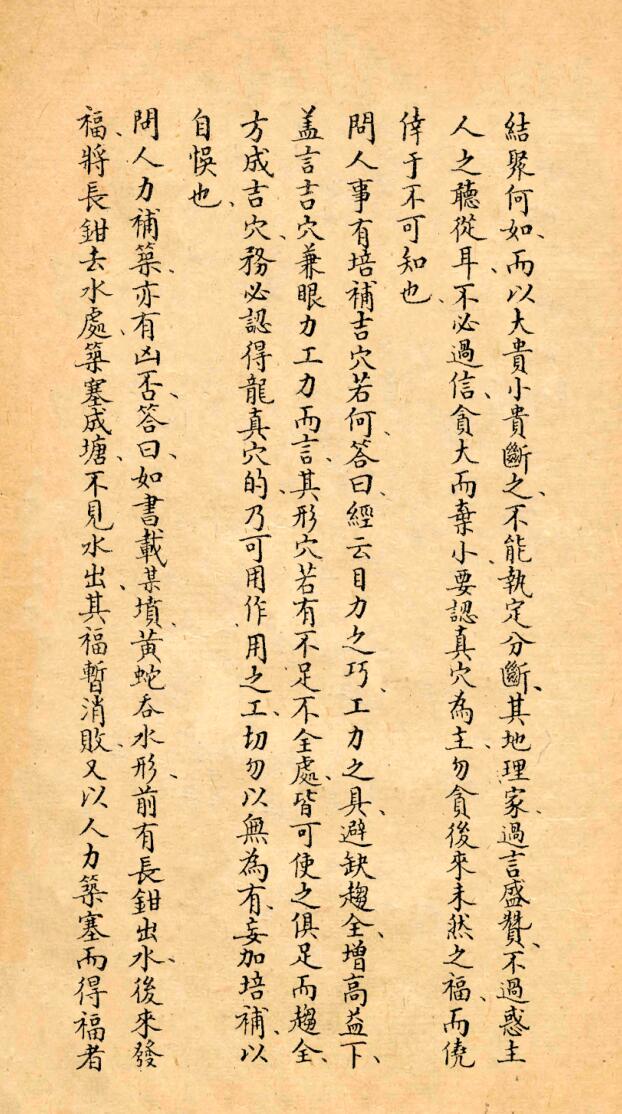 結聚何如、而以大貴小貴斷之、不能執定分斷、其地理家、過言盛贊、不過惑主
人之聽從耳、不必過信、貪大而棄小、要認真穴為主、勿貪後來未然之福、而僥
倖于不可知也、
問人事有培補吉穴若何、答曰、經云目力之巧、工力之具、避缺趨全、增高益下、
盖言吉穴兼眼力工力而言、其形穴若有不足不全處、皆可使之俱足而趨全、
方成吉穴、務必認得龍真穴的、乃可用作用之工、切勿以無為有、妄加培補、以
自悞也、
問人力補築、亦有凶否、答曰、如書載某墳、黃蛇吞水形、前有長鉗出水、後來發
福、將長鉗去水處、築塞成塘、不見水出、其福暫消敗、又以人力築塞而得福者